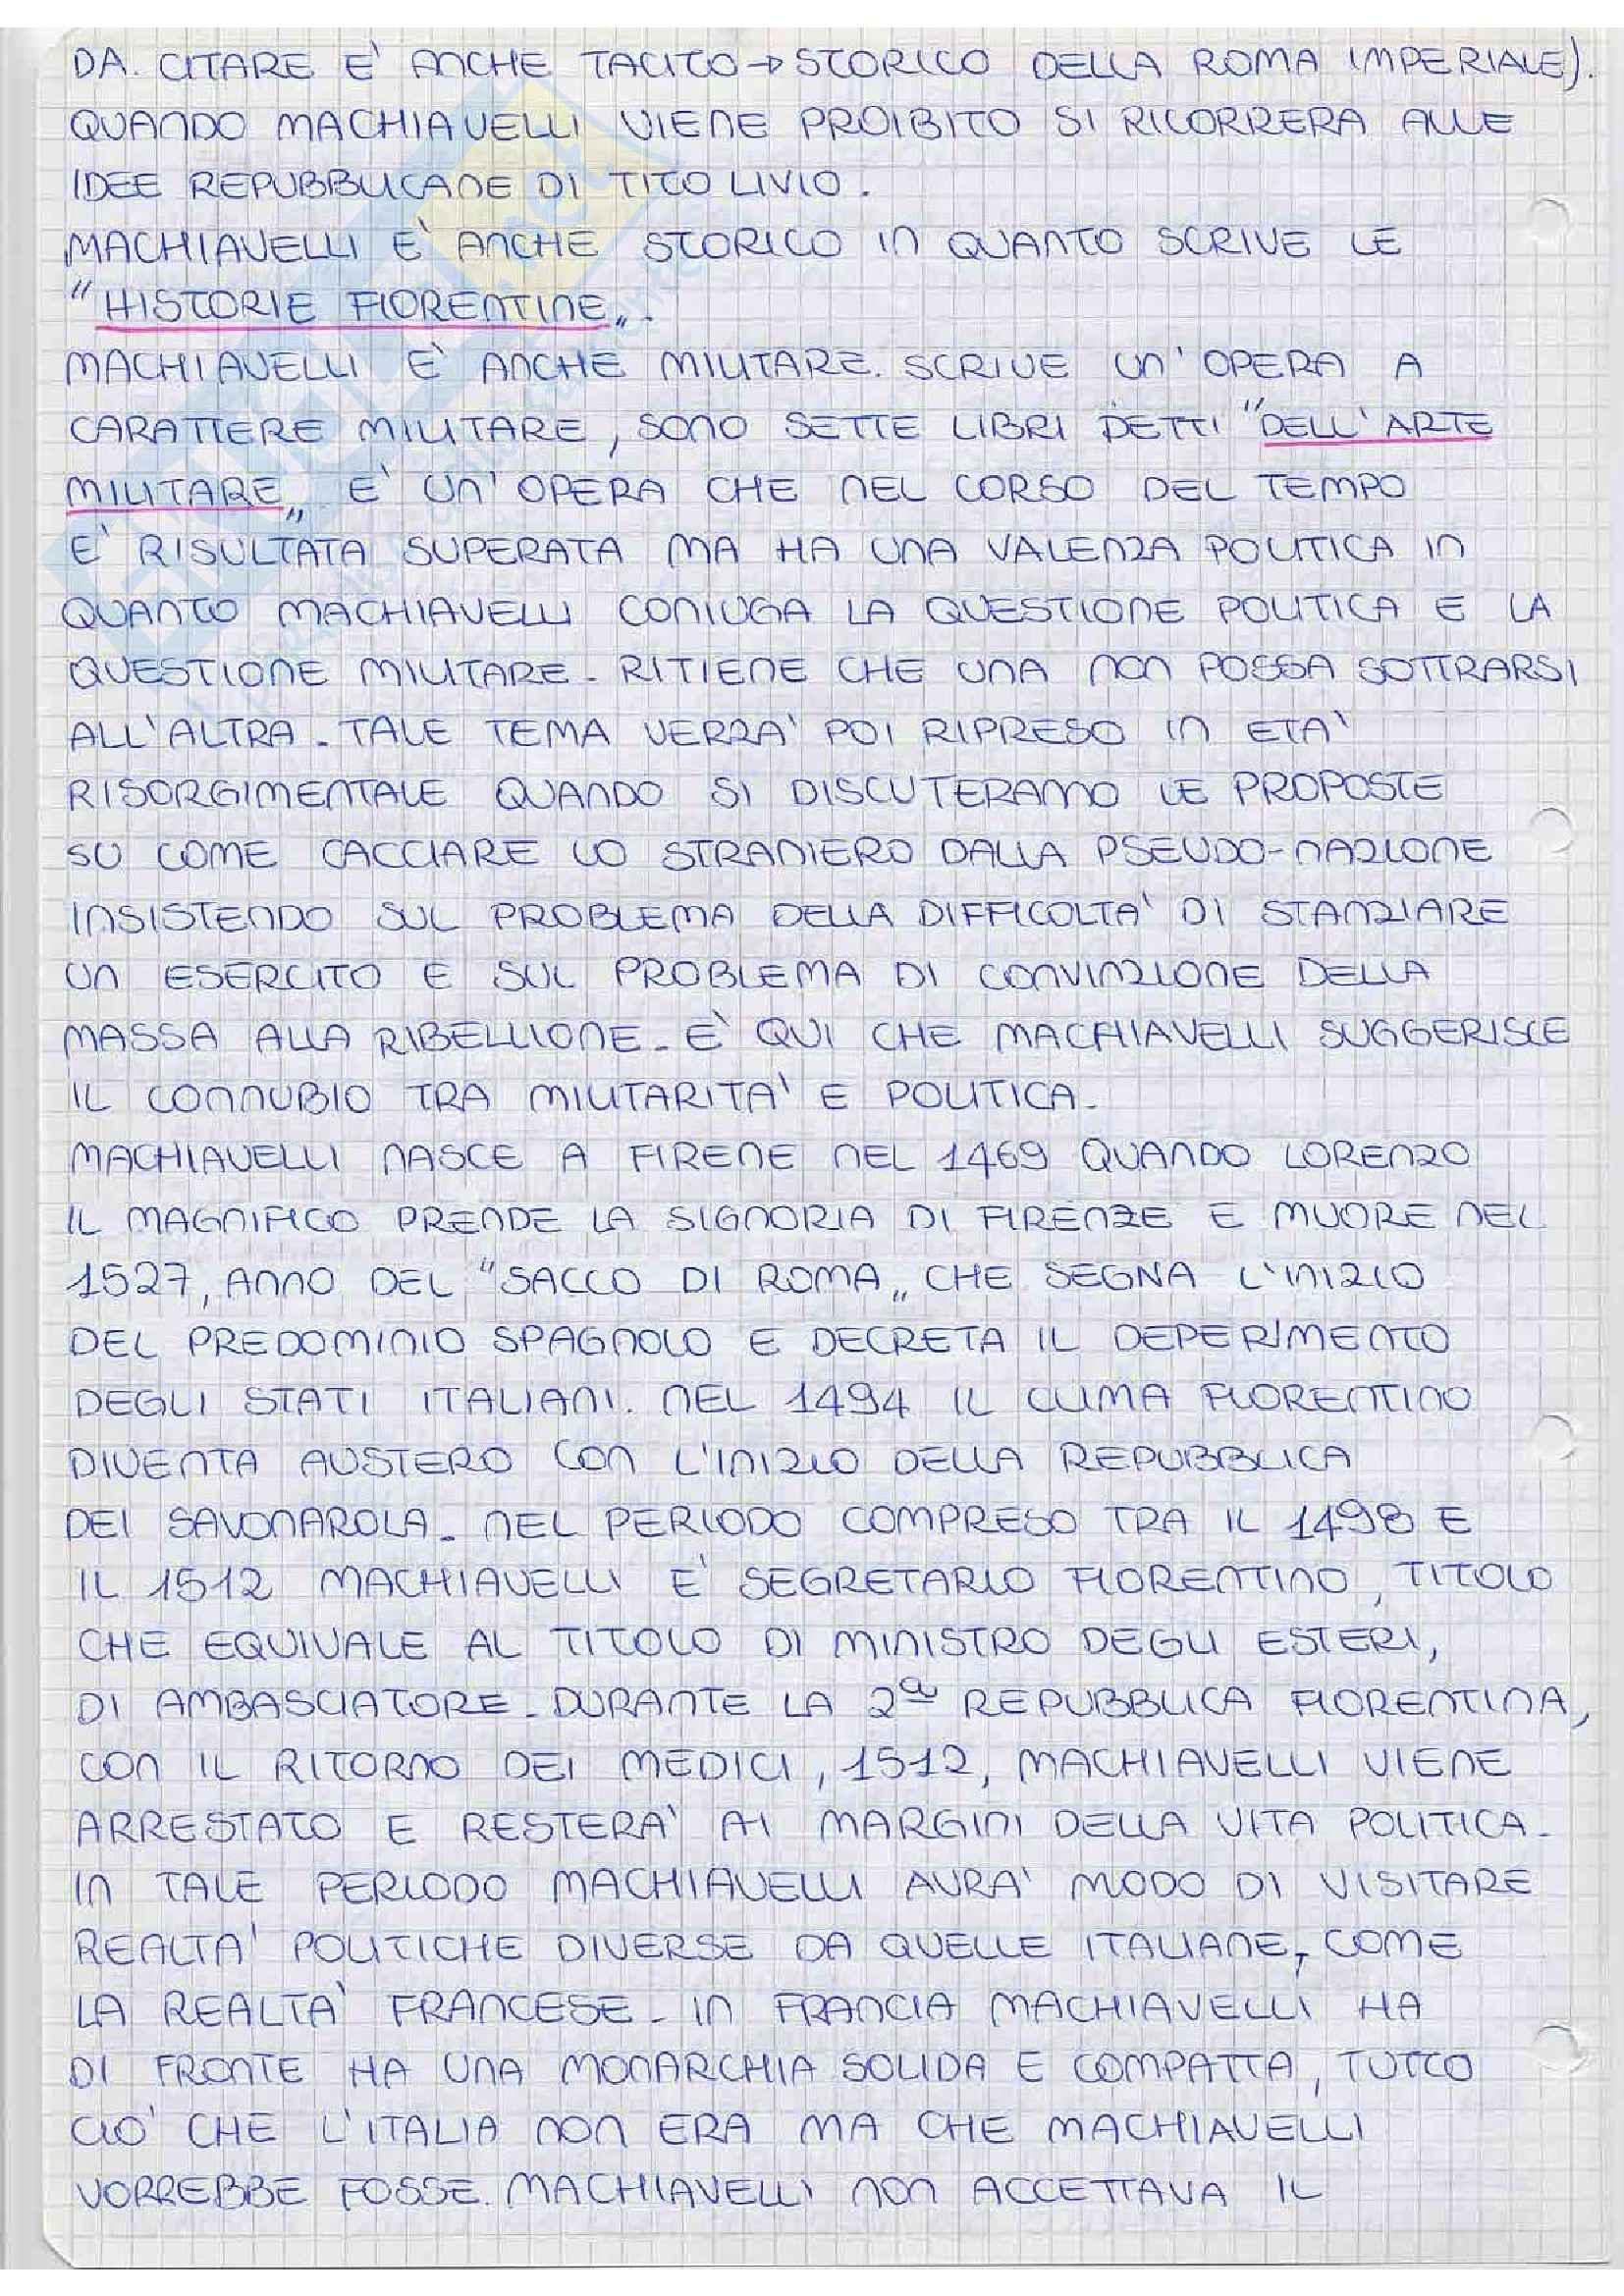 DA. CITARE E' ANCHE TACITO → STORICO DELLA ROMA IMPERIALE).
QUANDO MACHIAVELLI VIENE PROIBITO SI RICORRERA ALLE
IDEE REPUBBLICANE DI TITO LIVIO.
MACHIAVELLI E' ANCHE STORICO IN QUANTO SCRIVE LE
"HISTORIE FIORENTINE".
MACHIAVELLI E' ANCHE MILITARE. SCRIVE UN'OPERA A
CARATTERE MILITARE, SONO SETTE LIBRI DETTI "DELL'ARTE
MILITARE" E' UN'OPERA CHE NEL CORSO DEL TEMPO
E' RISULTATA SUPERATA MA HA UNA VALENZA POLITICA IN
QUANTO MACHIAVELLI CONIUGA LA QUESTIONE POLITICA E LA
QUESTIONE MILITARE. RITIENE CHE UNA NON POSSA SOTTRARSI
ALL'ALTRA. TALE TEMA VERRA' POI RIPRESO IN ETA'
RISORGIMENTALE QUANDO SI DISCUTERANNO LE PROPOSTE
SU COME CACCIARE LO STRANIERO DALLA PSEUDO-NAZIONE
INSISTENDO SUL PROBLEMA DELLA DIFFICOLTA' DI STANZIARE
UN ESERCITO E SUL PROBLEMA DI CONVINZIONE DELLA
MASSA ALLA RIBELLIONE. E' QUI CHE MACHIAVELLI SUGGERISCE
IL CONNUBIO TRA MILITARITA' E POLITICA.
MACHIAVELLI NASCE A FIRENE NEL 1469 QUANDO LORENZO
IL MAGNIFICO PRENDE LA SIGNORIA DI FIRENZE E MUORE NEL
1527, ANNO DEL "SACCO DI ROMA" CHE SEGNA L'INIZIO
DEL PREDOMINIO SPAGNOLO E DECRETA IL DEPERIMENTO
DEGLI STATI ITALIANI. NEL 1494 IL CLIMA FIORENTINO
DIVENTA AUSTERO CON L'INIZIO DELLA REPUBBLICA
DEI SAVONAROLA. NEL PERIODO COMPRESO TRA IL 1498 E
IL 1512 MACHIAVELLI E' SEGRETARIO FIORENTINO, TITOLO
CHE EQUIVALE AL TITOLO DI MINISTRO DEGLI ESTERI,
DI AMBASCIATORE. DURANTE LA 2ª REPUBBLICA FIORENTINA,
CON IL RITORNO DEI MEDICI, 1512, MACHIAVELLI VIENE
ARRESTATO E RESTERA' AI MARGINI DELLA VITA POLITICA.
IN TALE PERIODO MACHIAVELLI AVRA' MODO DI VISITARE
REALTA' POLITICHE DIVERSE DA QUELLE ITALIANE, COME
LA REALTA' FRANCESE. IN FRANCIA MACHIAVELLI HA
DI FRONTE HA UNA MONARCHIA SOLIDA E COMPATTA, TUTTO
CIO' CHE L'ITALIA NON ERA MA CHE MACHIAVELLI
VORREBBE FOSSE. MACHIAVELLI NON ACCETTAVA IL